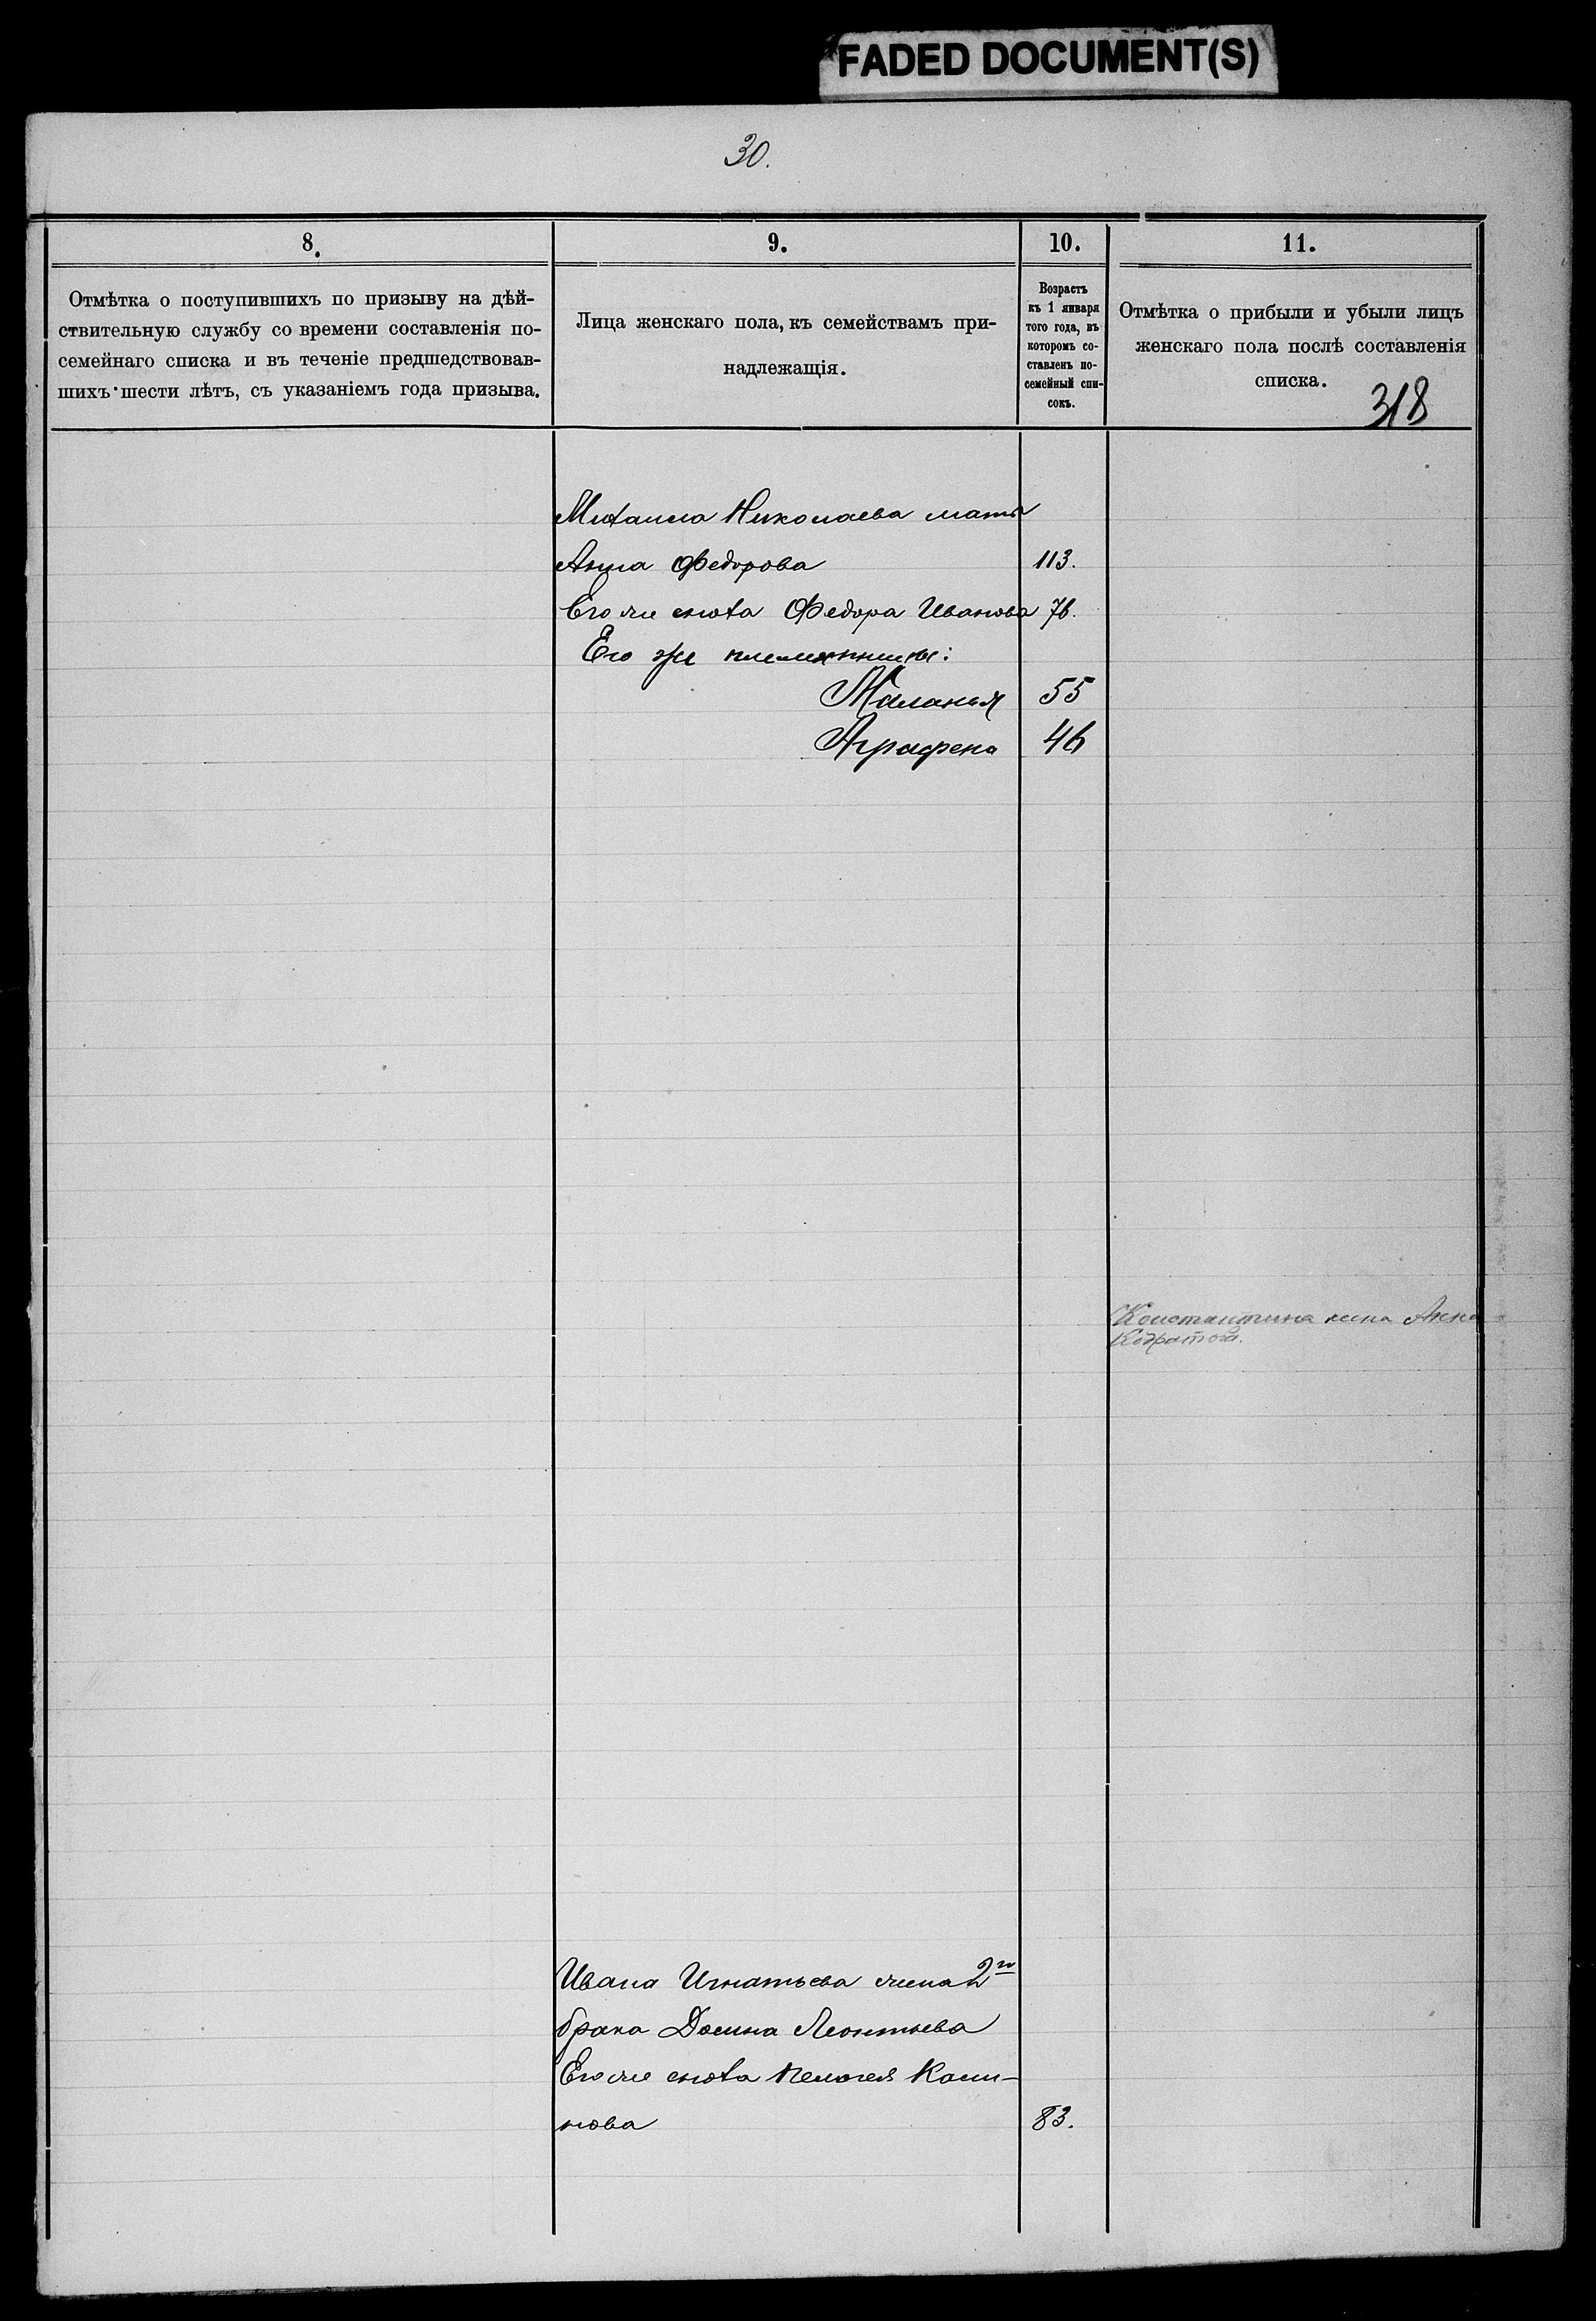 FADED DOCUMENT(S)
30.
8.
9.
10.
11.
Отмѣтка о поступившихъ по призыву на дѣй-
ствительную службу со времени составленія по-
семейнаго списка и въ теченіе предшедствовав-
шихъ шести лѣтъ, съ указаніемъ года призыва.
Лица женскаго пола, къ семействамъ при-
надлежащія.
Возрастъ
къ 1 января
того года, въ
которомъ со-
ставленъ по-
семейный спи-
сокъ.
Отмѣтка о прибыли и убыли лицъ
женскаго пола послѣ составленія
списка.
318
Михаила Николаева мать
Анна Федорова 113.
Его же сноха Федора Иванова 76.
Его же племянницы:
Маланья 55
Аграфена 46
Константина жена Анна
Ивана Игнатьева жена 2го
брака Домна Леонтьева
Его же сноха Пелагея
нова 83.